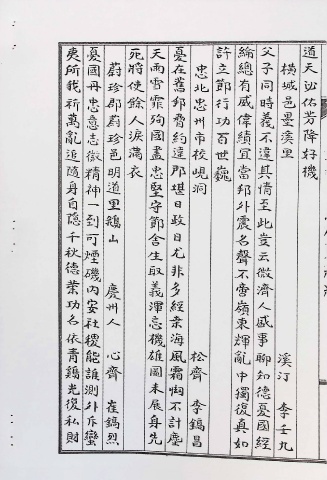 道天必佑芳降好機
橫城邑墨溪里 溪汀 李壬九
父子同時義不違其情至此豈云微濟人感事聊知德憂國經
綸總有威偉績宜當邦外震名聲不啻嶺東輝亂中獨復真如
許立節行功百世巍
忠北忠州市校峴洞 松齊 李鎬昌
憂在舊邦脅約違郡堪日政日尤非多經桑海風霜悔不計塵
天雨雪霏殉國盡忠堅守節舍生取義渾忘機雄圖未展身先
死將使餘人淚滿衣
蔚珍郡蔚珍邑明道里鷄山 慶州人 心齊 崔鎬烈
憂國丹忠意志徵精神一到可煙磯內安社稷能誰測外斥蠻
夷所我祈萬亂逅隨身自隱千秋德業功名依青鷄光復私財